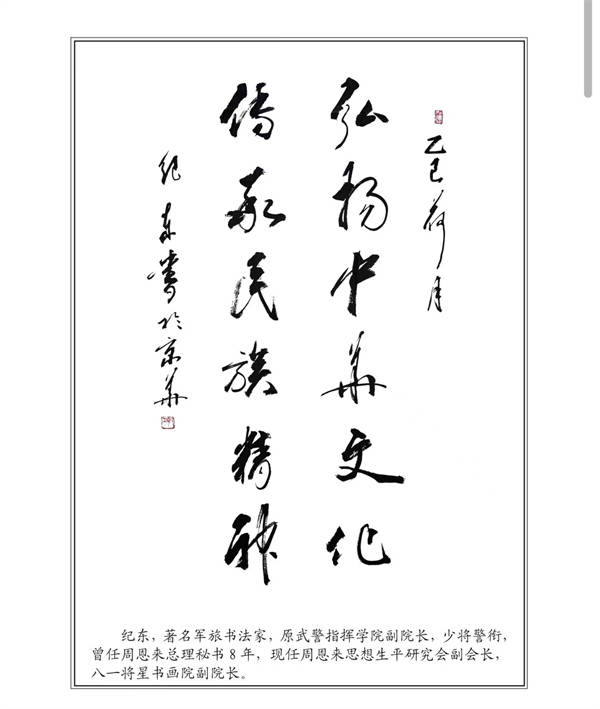 乙巳荷月
弘揚中華文化
傳承民族精神
紀東書於京華
纪东，著名军旅书法家，原武警指挥学院副院长，少将警衔，
曾任周恩来总理秘书8年，现任周恩来思想生平研究会副会长，
八一将星书画院副院长。